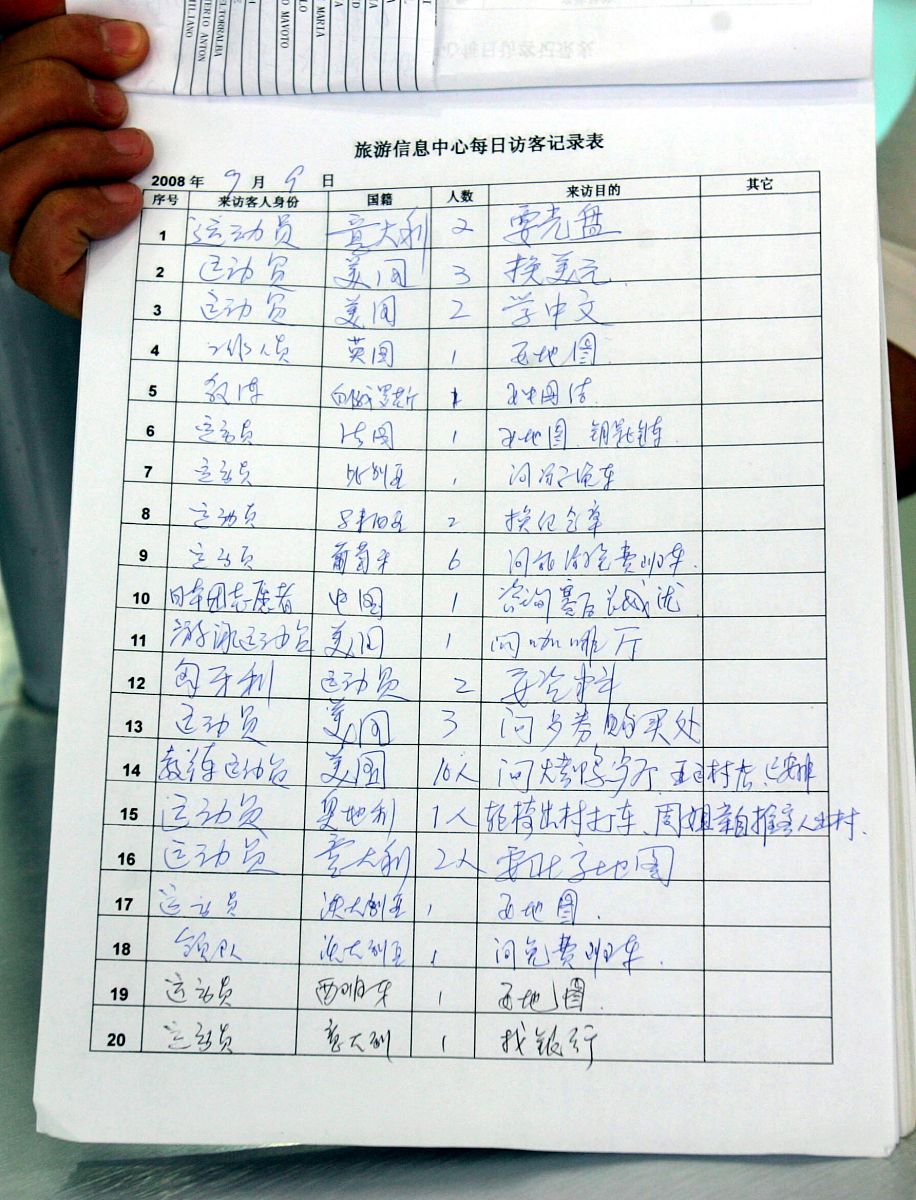 ULTORRALBA
TERIO ANTON
MILIANO
O MAVOTO
LO
MARTA
旅游信息中心每日访客记录表
2008 年 9 月 9 日
序号 来访客人身份 国籍 人数 来访目的 其它
1 运动员 意大利 2 要光盘
2 运动员 美国 3 换美元
3 运动员 美国 2 学中文
4 工作人员 英国 1 要地图
5 教练 白俄罗斯 1
6 运动员 法国 1 要地图、钥匙链车
7 运动员 1
8 运动员 2 换纪念章
9 运动员 葡萄牙 6 免费班车
10 日本团志愿者 中国 1 咨询赛后
11 游泳运动员 美国 1 问咖啡厅
12 匈牙利 运动员 2 要资料
13 运动员 美国 3 问 券购买处
14 教练运动员 美国 10人 问烤鸭 已安排
15 运动员 奥地利 1人 轮椅出村打车、周姐亲自推客人出村.
16 运动员 意大利 2人 要北京地图
17 运动员 澳大利亚 1 要地图.
18 领队 澳大利亚 1 问免费班车.
19 运动员 西班牙 1 要地图.
20 运动员 意大利 1 找银行